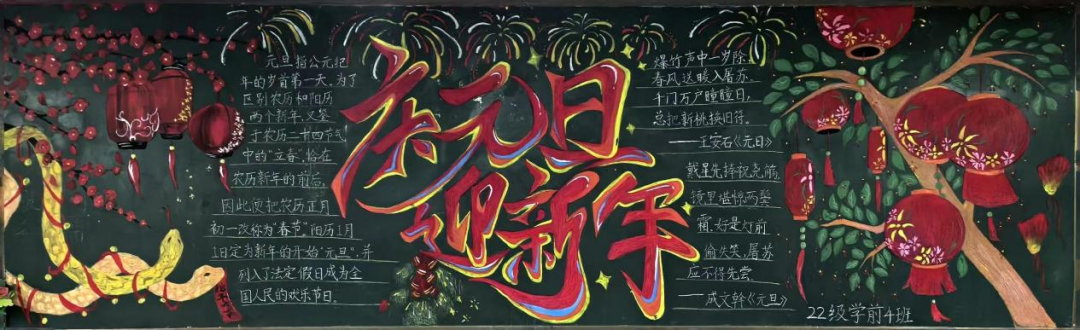 元旦指公元纪
年的岁首第一天。为了
区别农历和阳历
两个新年,又鉴
于农历二十四节气
中的“立春”恰在
农历新年的前后,
因此便把农历正月
初一改称为“春节”阳历1月
1日定为新年的开始“元旦”,并
列入了法定假日成为全
国人民的欢乐节日。
庆元旦
迎新年
爆竹声中一岁除,
春风送暖入屠苏。
千门万户曈曈日,
总把新桃换旧符。
——王安石《元旦》
戴星先捧祝尧觞,
镜里堪惊两鬓
霜。好是灯前
偷失笑,屠苏
应不得先尝
——成文幹《元旦》
22级学前4班